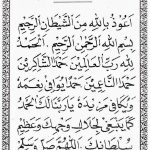 اَعُوْذُ بِاللهِ مِنَ الشَّيْطَانِ الرَّجِيْمِ
بِسْمِ اللهِ الرَّحْمٰنِ الرَّحِيْمِ اَلْحَمْدُ
لِلّٰهِ رَبِّ الْعَالَمِيْنَ حَمْدًا الشَّاكِرِيْنَ
حَمْدًا النَّاعِمِيْنَ حَمْدًا يُوَافِيْ نِعَمَهُ
وَيُكَافِئُ مَزِيْدَهُ يَارَبَّنَا لَكَ الْحَمْدُ
كَمَا يَنْبَغِيْ لِجَلَالِ وَجْهِكَ وَعَظِيْمِ
سُلْطَانِكَ اَللّٰهُمَّ صَلِّ وَسَلِّمْ